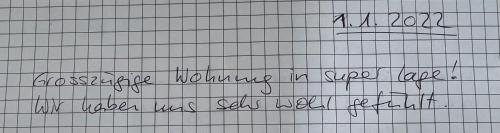 1.1.2022
Grosszügige Wohnung in super Lage!
Wir haben uns sehr wohl gefühlt.